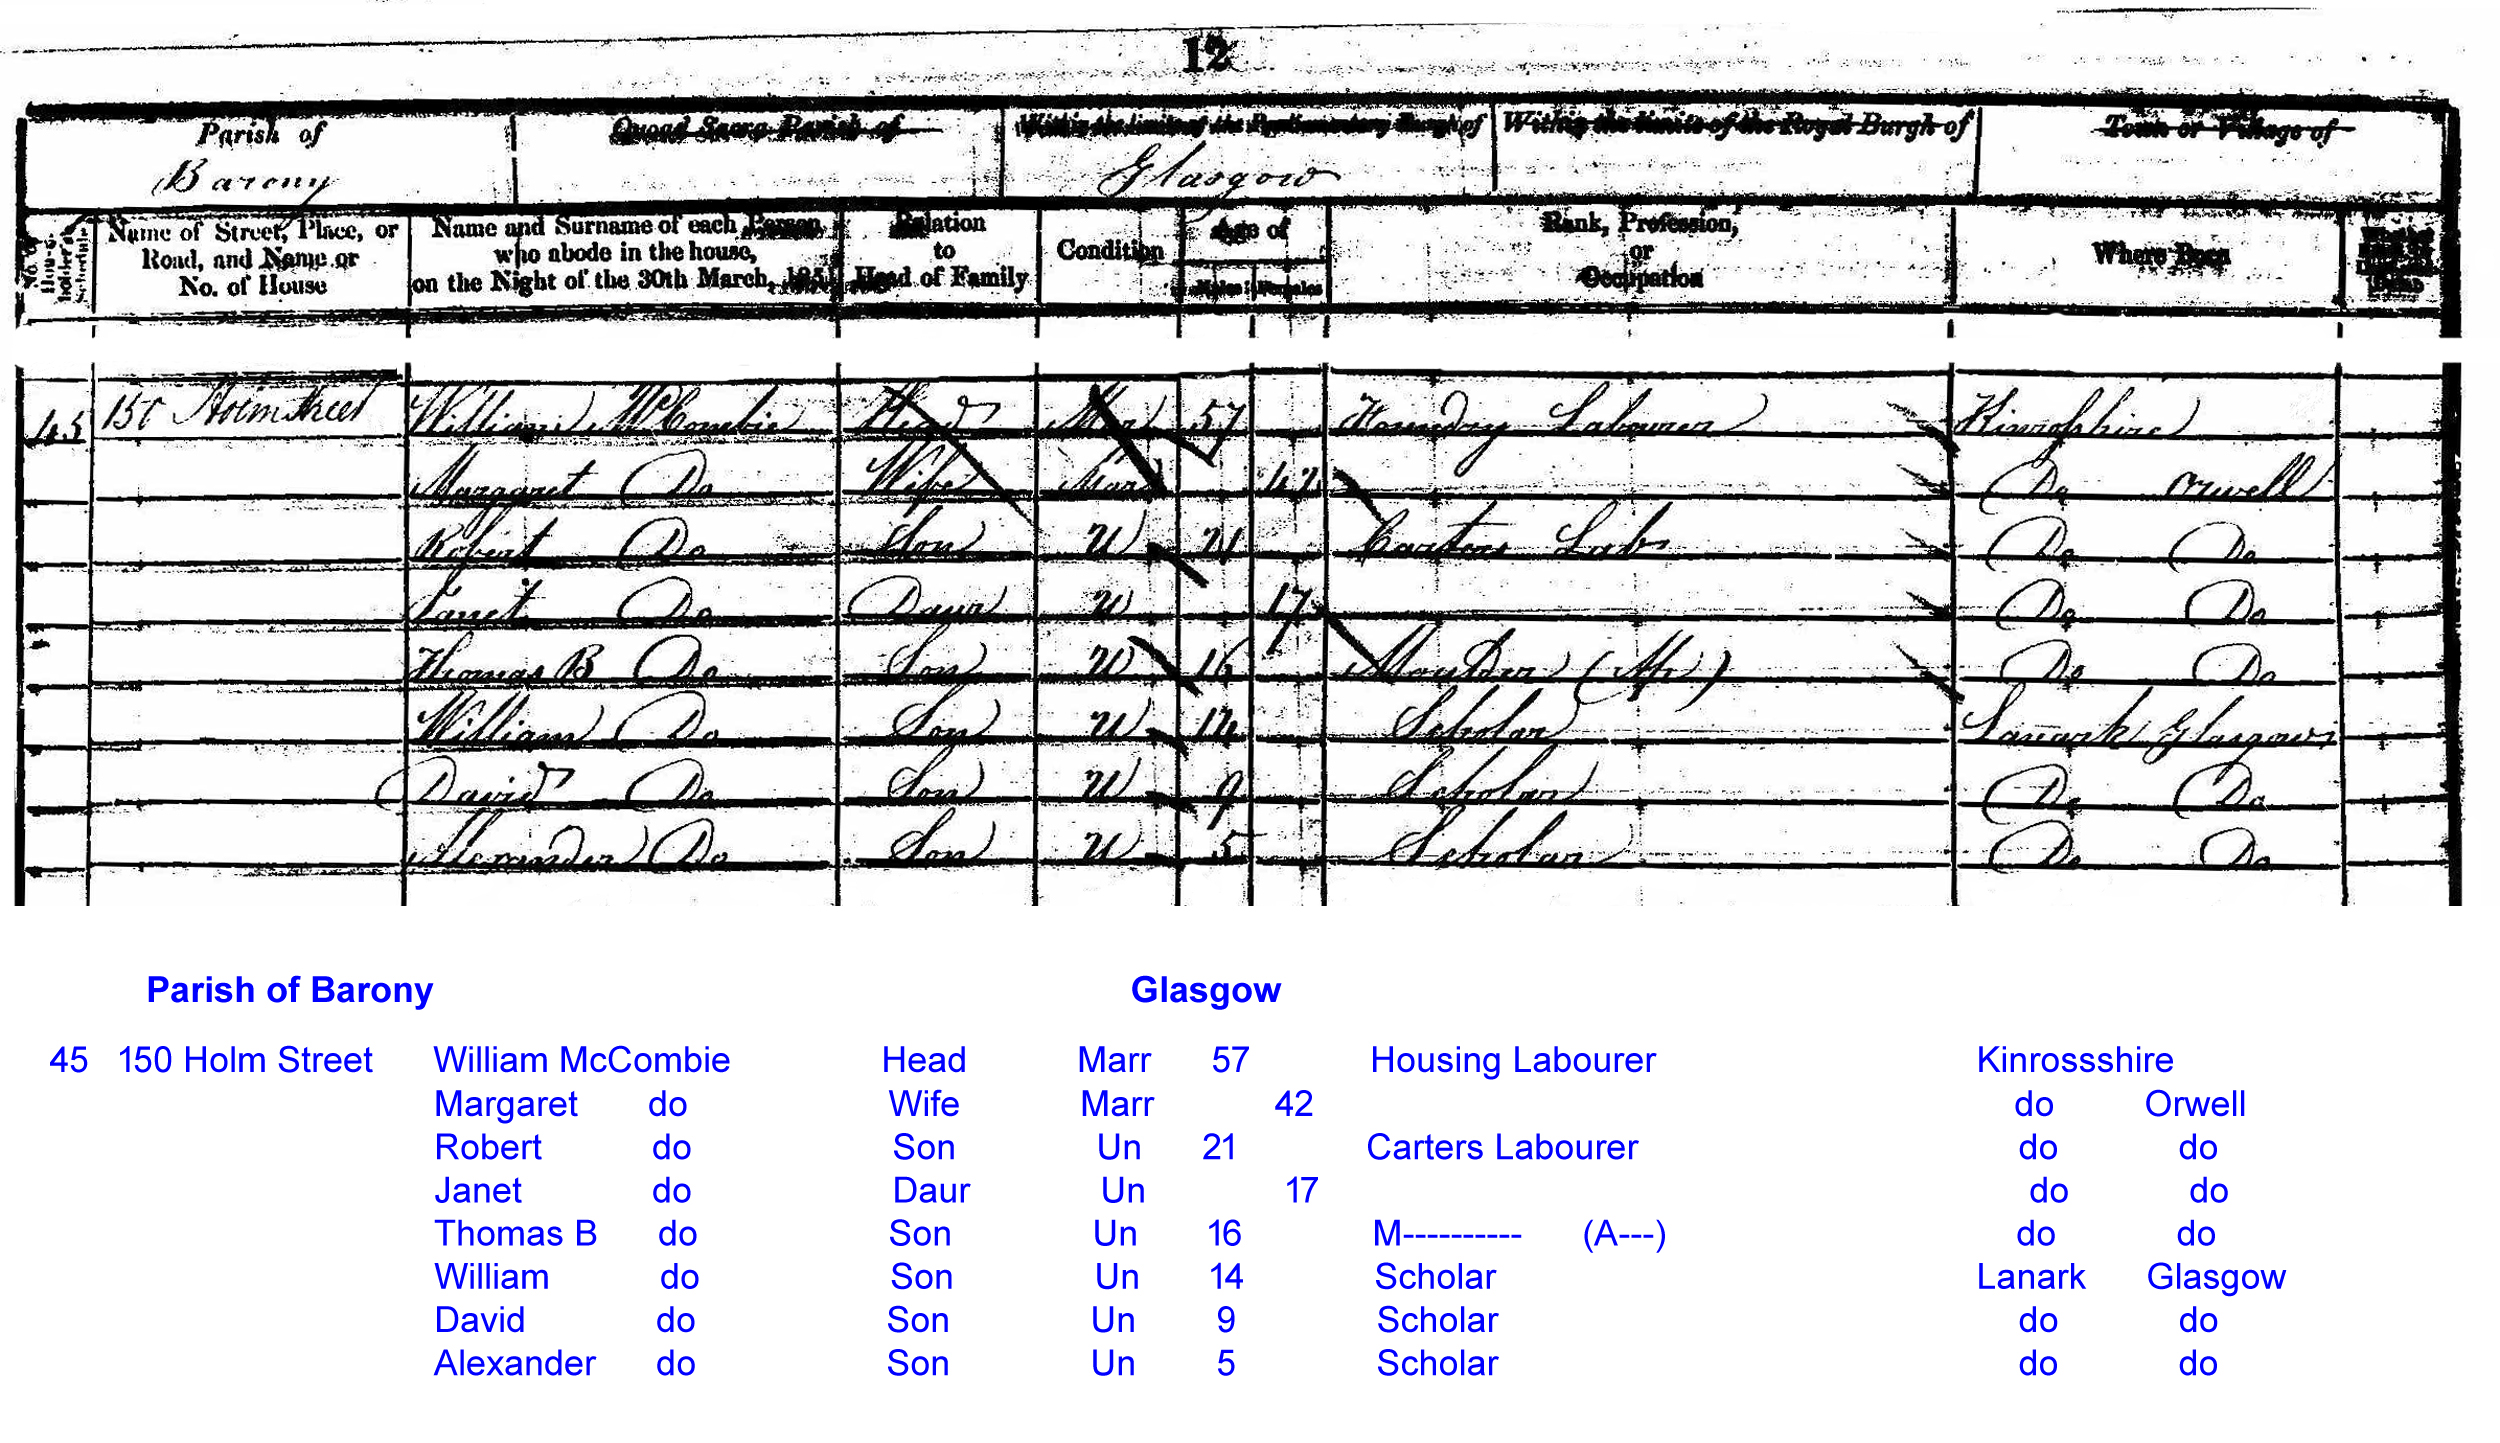 12
Parish of
Barony
Quoad Sacra Parish of
Within the limits of the Parliamentary Burgh of
Glasgow
Within the limits of the Royal Burgh of
Town or Village of
No. of House-holder's Schedule
Name of Street, Place, or Road, and Name or No. of House
Name and Surname of each Person who abode in the house, on the Night of the 30th March, 1851
Relation to Head of Family
Condition
Age of
Males Females
Rank, Profession, or Occupation
Where Born
45 150 Holm Street William McCombie Head Mar 57 Foundry Labourer Kinrosshire
Margaret Do Wife Mar 42 Do Orwell
Robert Do Son U 21 Carters Lab Do Do
Janet Do Daur U 17 Do Do
Thomas B Do Son U 16 Moulder (Ap) Do Do
William Do Son U 14 Scholar Lanark Glasgow
David Do Son U 9 Scholar Do Do
Alexander Do Son U 5 Scholar Do Do
Parish of Barony Glasgow
45 150 Holm Street William McCombie Head Marr 57 Housing Labourer Kinrossshire
Margaret do Wife Marr 42 do Orwell
Robert do Son Un 21 Carters Labourer do do
Janet do Daur Un 17 do do
Thomas B do Son Un 16 M---------- (A---) do do
William do Son Un 14 Scholar Lanark Glasgow
David do Son Un 9 Scholar do do
Alexander do Son Un 5 Scholar do do